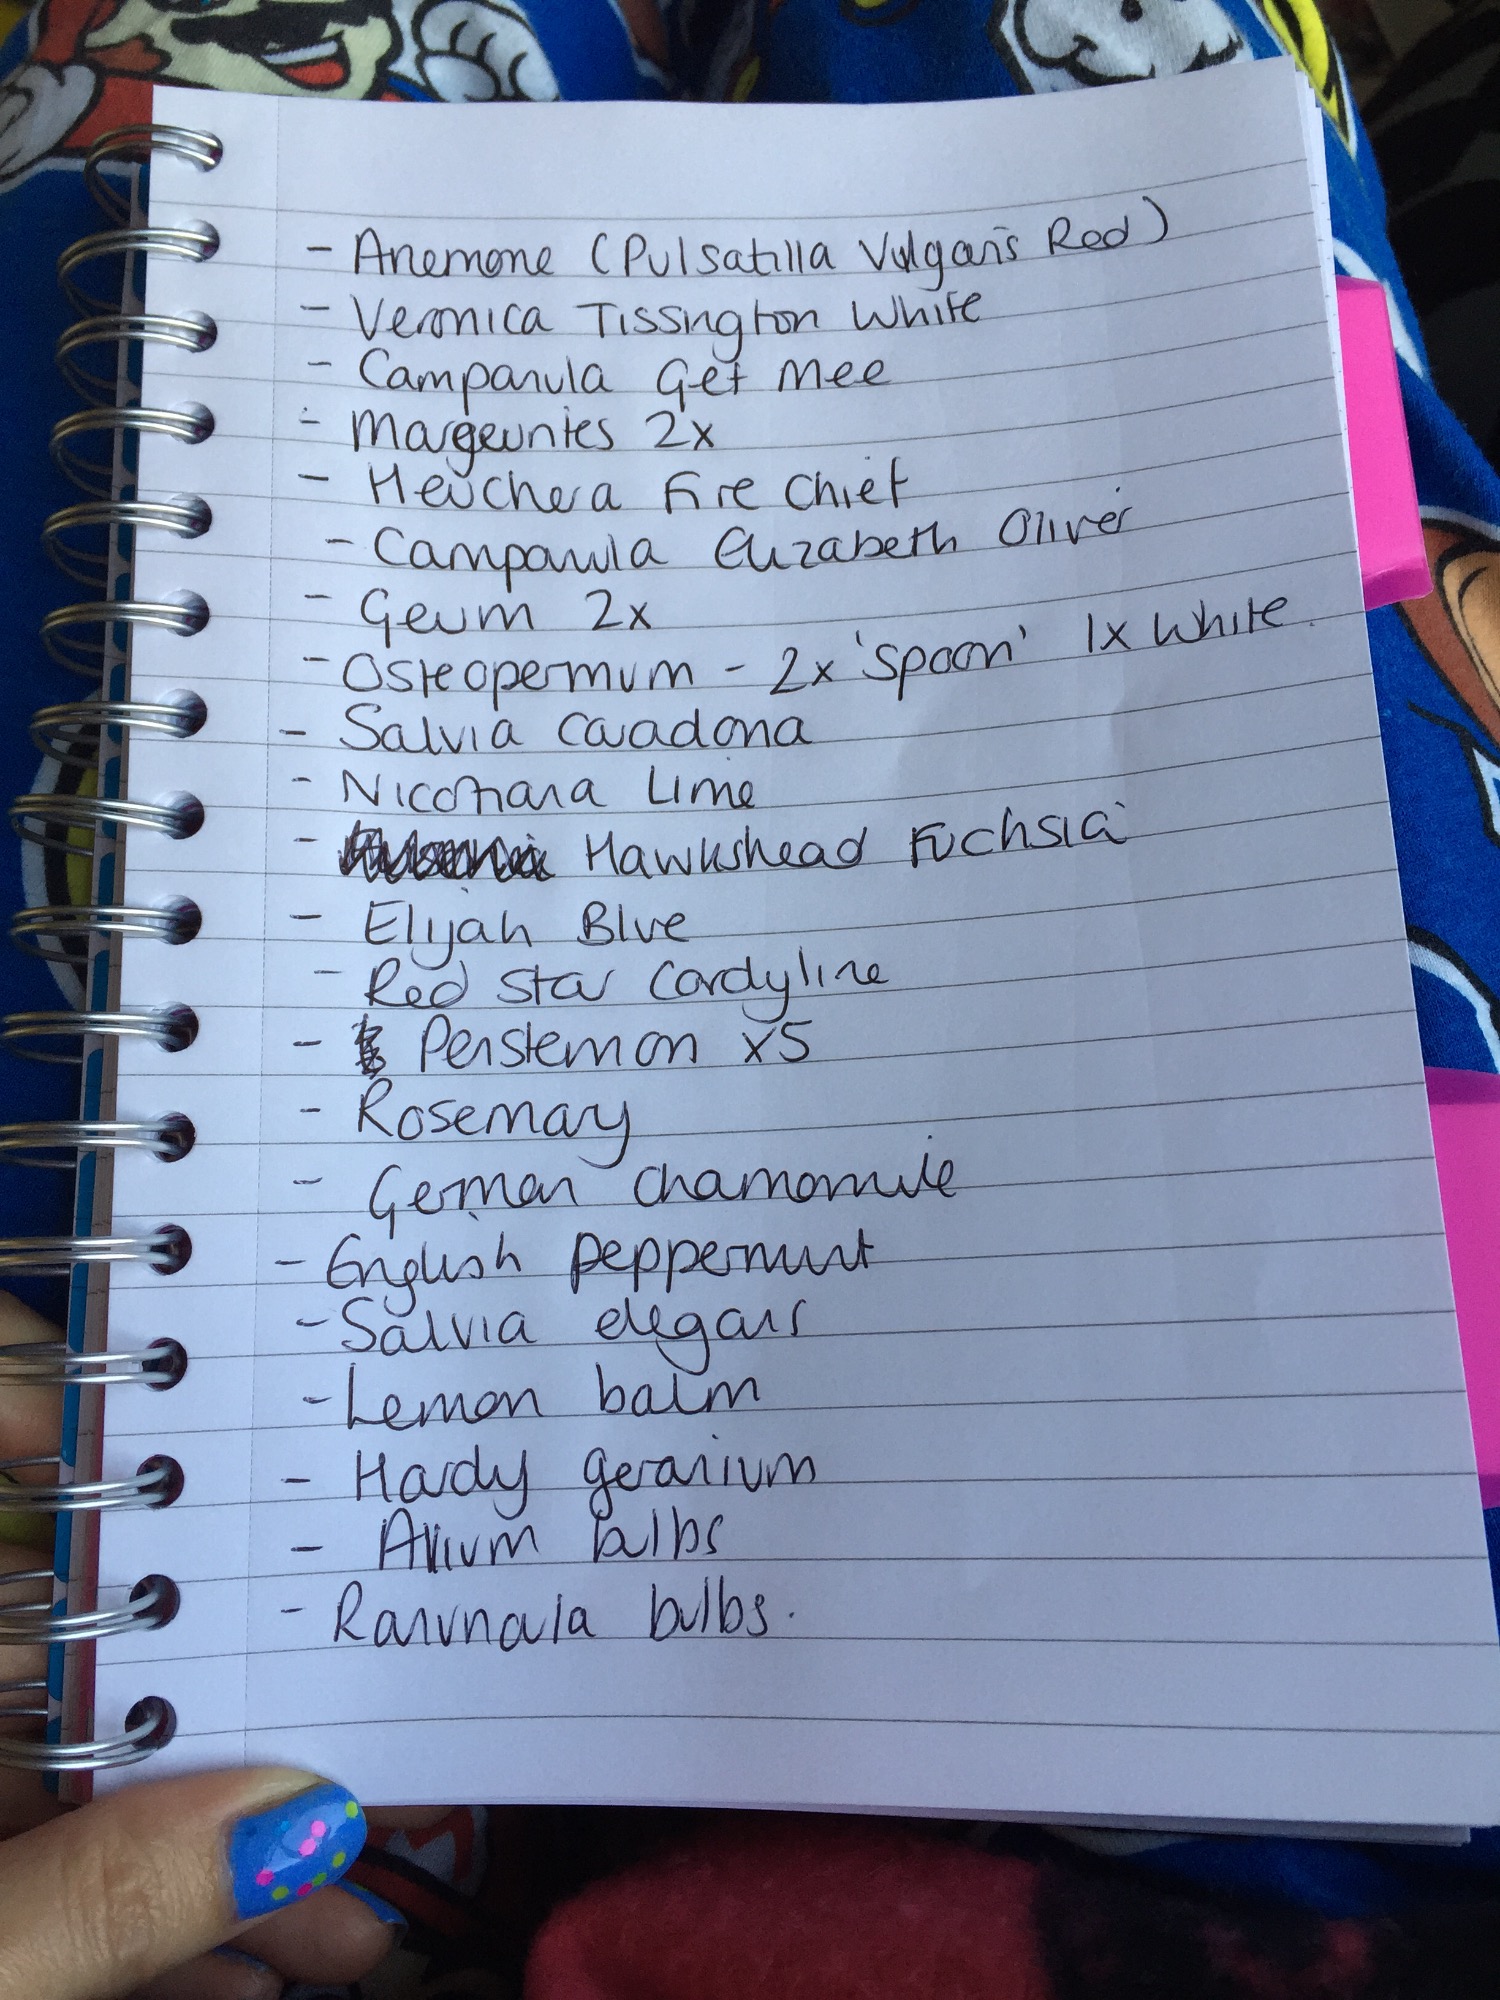 - Anemone (Pulsatilla Vulgaris Red)
- Veronica Tissington White
- Campanula Get Mee
- Margeurites 2x
- Heuchera Fire Chief
- Campanula Elizabeth Oliver
- Geum 2x
- Osteopermum - 2x 'Spoon' 1x White.
- Salvia Caradona
- Nicotiana Lime
- Hawkshead Fuchsia
- Elijah Blue
- Red Star Cordyline
- Penstemon x5
- Rosemary
- German Chamomile
- English Peppermint
- Salvia elegans
- Lemon balm
- Hardy geranium
- Allium bulbs
- Ranuncula bulbs.